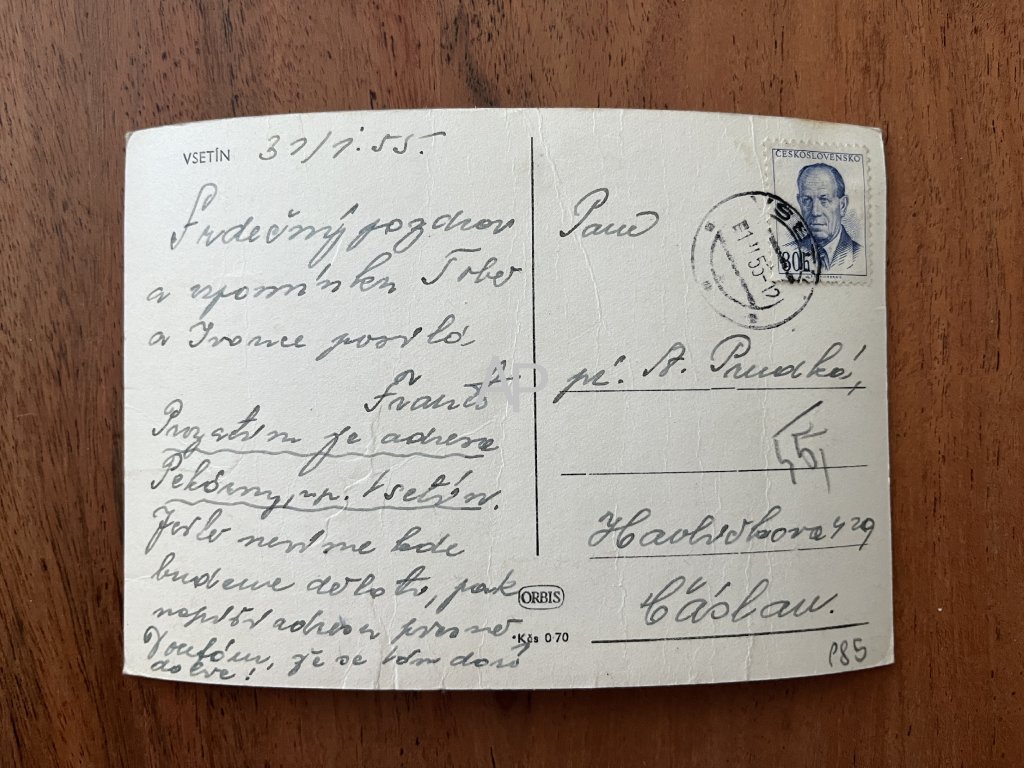 VSETÍN 31/1.55.
Srdečný pozdrav
a vzpomínku Tobě
a Ivance posílá
Franta
Prozatím je adresa
Pekárny, n.p. Vsetín.
Ještě nevíme kde
budeme dělati, pak
napíši adresu přesně
Doufám, že se vám daří
dobře!
ČESKOSLOVENSKO
VSE
55-12
Paní
pí. A. Prudká,
Havlíčkova 429
Čáslav.
ORBIS
*Kčs 0·70
P85
AP